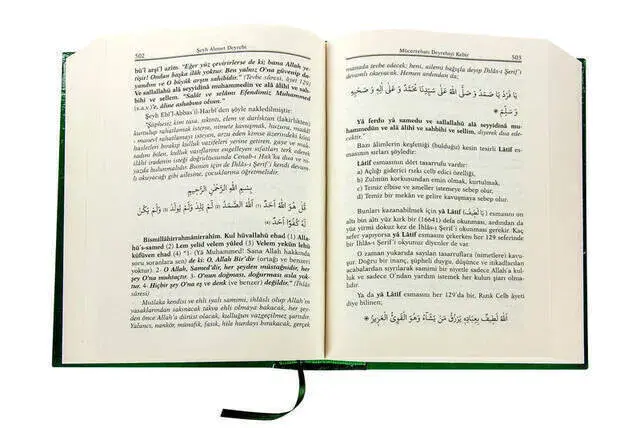 502
Şeyh Ahmet Deyrebi
bü'l arşi'l azim. "Eğer yüz çevirirlerse de ki; bana Allah ye-
tişir! Ondan başka ilâh yoktur. Ben yalnız O'na güvenip da-
yandım ve O büyük arşın sahibidir." (Tevbe sûresi, âyet 129)
Ve sallallahü alâ seyyidinâ muhammedin ve alâ âlihî ve sah-
bihî ve sellim. "Salât ve selâm Efendimiz Muhammed
(s.a.v)'e, âline ashabına olsun."
Şeyh Ebî'l-Abbas'il-Harbî'den şöyle nakledilmiştir:
"Şüphesiz kim tasa, sıkıntı, elem ve darlıktan (fakirlikten)
kurtulup rahatlamak isterse, nimete kavuşmak, huzura, maddî
- manevî rahatlamayı isterse, arzu eden kimse üzerindeki kötü
illahî yardımın
isteği doğrultusunda Cenab-ı Hak'ka dua ve ni-
yazda bulunmalıdır. Bunun için de İhlâs-ı Şerif'i kendi devam-
lı okuyacağı gibi ailesine, çocuklarına öğretmelidir.
بِسْمِ اللهِ الرَّحْمٰنِ الرَّحِيمِ
قُلْ هُوَ اللهُ اَحَدٌ (١) اَللهُ الصَّمَدُ (٢) لَمْ يَلِدْ وَلَمْ يُولَدْ (٣) وَلَمْ يَكُنْ
لَهُ كُفُوًا اَحَدٌ (٤)
Bismillâhirrahmânirrahîm. Kul hüvallahü ehad (1) Alla-
hü's-samed (2) Lem yelid velem yûled (3) Velem yekün lehû
küfüven ehad (4) "1- (Yâ Muhammed! Sana Allah hakkında
soru soranlara sen) de ki: O, Allah Bir'dir (ortağı ve benzeri
yoktur). 2- O Allah, Samed'dir, her şeyden müstağnidir, her
şey O'na muhtaçtır. 3- O'nun doğması, doğurması asla yok-
tur. 4. Hiçbir şey O'na eş ve denk (ve benzer) değildir." (İhlâs
sûresi)
Mutlaka kendisi ve ehli iyali samimi, ihlâslı olup Allah'ın
yasaklarından sakınacak takva ehli olmaya bakacak, her şey-
den önce Allah'a dürüst olacak, kulluğun vazgeçilmez şartıdır.
Yalancı, nankör, münafık, fasık, hile hurdayı bırakacak, gerçek
Mücerrebatı Deyrebiyi Kebir
503
mânada tevbe edecek; beni, ailemi bağışla deyip İhlâs-ı Şerif'i
devamlı okuyacak. Hemen ardından da;
يَا فَرْدُ يَا صَمَدُ وَ صَلَّى اللهُ عَلٰى سَيِّدِنَا مُحَمَّدٍ وَ عَلٰى اٰلِهِ وَ صَحْبِهِ
وَ سَلَّمَ
Yâ ferdu yâ samedu ve sallallahü alâ seyyidinâ mu-
hammedün ve alâ âlihî ve sahbihî ve sellim, diyerek dua ede-
cektir."
Bazı âlimlerin keşfettiği (bulduğu) kesin tesirli Lâtif
esmasının sırları şöyledir:
Lâtif esmasının dört tasarrufu vardır:
a) Açlığı giderici rızkı celb edici özelliği,
b) Zulmün korkusundan emin olmak, kurtulmak,
c) Temiz elbise ve ameller istemeye sebep olur,
d) Temiz mekân ve gelire kavuşmaya sebep olur.
Bunları kazanabilmek için yâ Lâtif (يَا لَطِيفُ) esmasını on
altı bin altı yüz kırk bir (16641) defa okumanız, ardından da
yüz yirmi dokuz kez de İhlâs-ı Şerif'i okunması gerekir. Kaç
sefer yapıyorsa yâ Lâtif esmasını çekerken her 129 seferinde
bir İhlâs-ı Şerif'i okuyunuz diyenler de var.
O zaman yukarıda sayılan tasarruflara (nimetlere) kavu-
şur. Doğru bir inanç, şüpheli duygu, düşünce ve itikadlardan
arkasındaki sıyrılarak samimi bir niyetle sadece Allah'a kul-
luk ve sadece O'ndan yardım istemek her kulun şiarı olma-
lıdır.
Ya da yâ Lâtif esmasını her 129'da bir, Rızık Celb âyeti
diye bilinen;
اَللهُ لَطِيفٌ بِعِبَادِهِ يَرْزُقُ مَنْ يَشَاءُ وَهُوَ الْقَوِيُّ الْعَزِيزُ